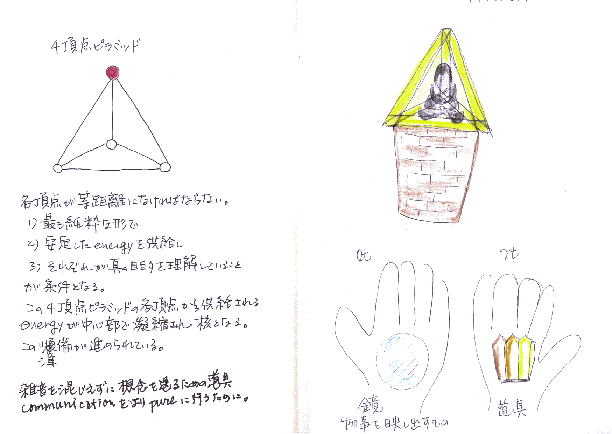 4頂点ピラミッド
各頂点が等距離になければならない。
1) 最も純粋な形で
2) 安定したenergyを供給し
3) それぞれが真の目的を理解していること
が条件となる。
この4頂点ピラミッドの各頂点から供給される
energyが中心部で凝縮され、核となる。
この準備が進められている。
準
雑音を混じえずに想念を送るための道具
communicationをよりpureに行うために。
右
左
鏡
物事を映し出すもの
道具